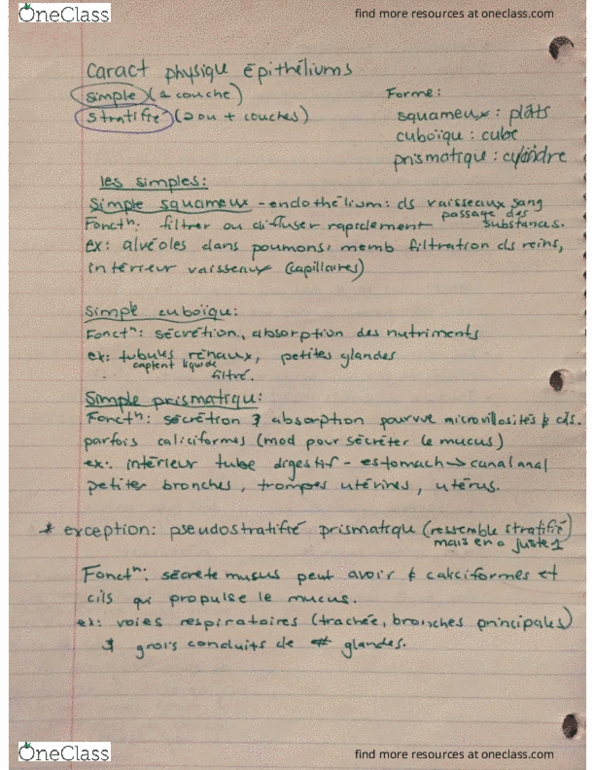 OneClass
find more resources at oneclass.com
Caract physique épithéliums
simple (1 couche)
stratifié (2 ou + couches)
Forme:
squameux : plâts
cuboïque : cube
prismatique : cylindre
les simples:
Simple squameux - endothélium: ds vaisseaux sang
Fonctⁿ: filtrer ou diffuser rapidement passage des substances.
ex: alvéoles dans poumons, memb filtration ds reins,
intérieur vaisseaux (capillaires)
Simple cuboïque:
Fonctⁿ: sécrétion, absorption des nutriments
ex: tubules rénaux, petites glandes
captent liquide
filtré.
Simple prismatiqu:
Fonctⁿ: sécrétion & absorption pourvue microvillosités &
parfois caliciformes (mod pour sécréter le mucus)
ex: intérieur tube digestif - estomach → canal anal
petiter bronches, trompes utérines, utérus.
* exception: pseudostratifié prismatique (ressemble stratifié)
mais en a juste 1
Fonctⁿ: sécrète musus peut avoir calciformes et
cils qui propulse le mucus.
ex: voies respiratoires (trachée, bronches principales)
& grois conduits de # glandes.
OneClass
find more resources at oneclass.com